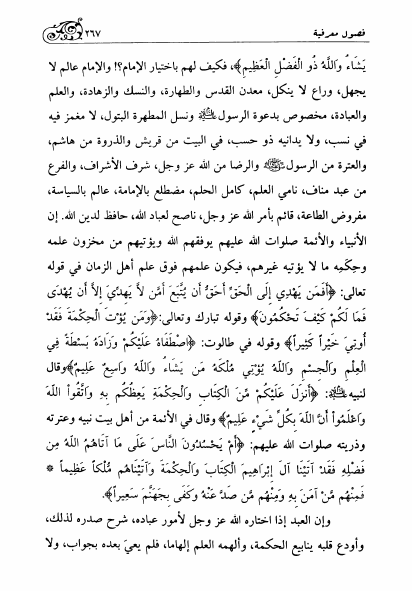 فصول معرفية
٢٦٧
يَشَاءُ وَاللَّهُ ذُو الْفَضْلِ الْعَظِيمِ﴾، فكيف لهم باختيار الإمام؟! والإمام عالم لا
يجهل، وراع لا ينكل، معدن القدس والطهارة، والنسك والزهادة، والعلم
والعبادة، مخصوص بدعوة الرسول ﷺ ونسل المطهرة البتول، لا مغمز فيه
في نسب، ولا يدانيه ذو حسب، في البيت من قريش والذروة من هاشم،
والعترة من الرسول ﷺ والرضا من الله عز وجل، شرف الأشراف، والفرع
من عبد مناف، نامي العلم، كامل الحلم، مضطلع بالإمامة، عالم بالسياسة،
مفروض الطاعة، قائم بأمر الله عز وجل، ناصح لعباد الله، حافظ لدين الله. إن
الأنبياء والأئمة صلوات الله عليهم يوفقهم الله ويؤتيهم من مخزون علمه
وحِكَمِه ما لا يؤتيه غيرهم، فيكون علمهم فوق علم أهل الزمان في قوله
تعالى: ﴿أَفَمَن يَهْدِي إِلَى الْحَقِّ أَحَقُّ أَن يُتَّبَعَ أَمَّن لَا يَهِدِّيَ إِلَّا أَن يُهْدَى
فَمَا لَكُمْ كَيْفَ تَحْكُمُونَ﴾ وقوله تبارك وتعالى: ﴿وَمَن يُؤْتَ الْحِكْمَةَ فَقَدْ
أُوتِيَ خَيْراً كَثِيراً﴾ وقوله في طالوت: ﴿اصْطَفَاهُ عَلَيْكُمْ وَزَادَهُ بَسْطَةً فِي
الْعِلْمِ وَالْجِسْمِ وَاللَّهُ يُؤْتِي مُلْكَهُ مَن يَشَاءُ وَاللَّهُ وَاسِعٌ عَلِيمٌ﴾ وقال
لنبيه ﷺ: ﴿أَنزَلَ عَلَيْكُمْ مِّنَ الْكِتَابِ وَالْحِكْمَةِ يَعِظُكُم بِهِ وَاتَّقُوا اللَّهَ
وَاعْلَمُوا أَنَّ اللَّهَ بِكُلِّ شَيْءٍ عَلِيمٌ﴾ وقال في الأئمة من أهل بيت نبيه وعترته
وذريته صلوات الله عليهم: ﴿أَمْ يَحْسُدُونَ النَّاسَ عَلَى مَا آتَاهُمُ اللَّهُ مِن
فَضْلِهِ فَقَدْ آتَيْنَا آلَ إِبْرَاهِيمَ الْكِتَابَ وَالْحِكْمَةَ وَآتَيْنَاهُم مُّلْكاً عَظِيماً *
فَمِنْهُم مَّنْ آمَنَ بِهِ وَمِنْهُم مَّن صَدَّ عَنْهُ وَكَفَى بِجَهَنَّمَ سَعِيراً﴾.
وإن العبد إذا اختاره الله عز وجل لأمور عباده، شرح صدره لذلك،
وأودع قلبه ينابيع الحكمة، وألهمه العلم إلهاما، فلم يعي بعده بجواب، ولا